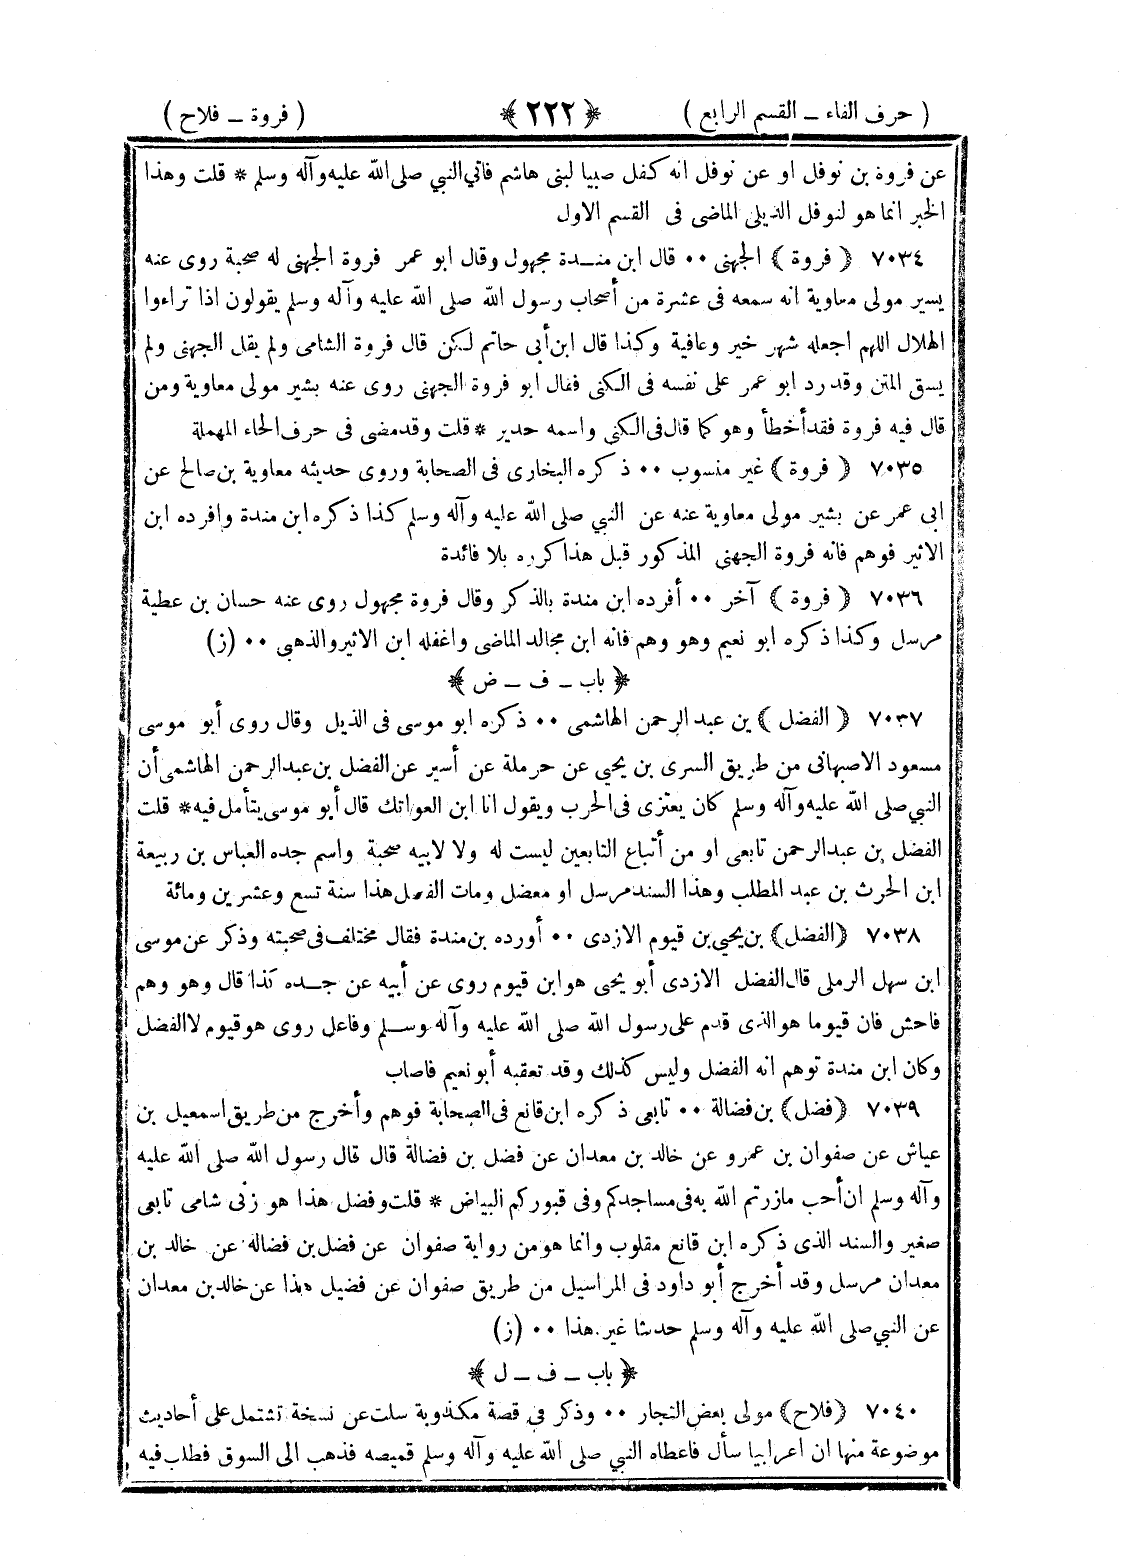 ( حرف الفاء ــ القسم الرابع ) ﴿ ٢٢٢ ﴾ ( فروة ــ فلاح )
عن فروة بن نوفل او عن نوفل انه كفل صبيا لبنى هاشم فاتي النبي صلى الله عليه وآله وسلم * قلت وهذا
الخبر انما هو لنوفل الديلى الماضى فى القسم الاول
٧٠٣٤ ﴿ فروة ﴾ الجهنى ٠٠ قال ابن منــدة مجهول وقال ابو عمر فروة الجهنى له صحبة روى عنه
يسير مولى معاوية انه سمعه فى عشرة من أصحاب رسول الله صلى الله عليه وآله وسلم يقولون اذا تراءوا
الهلال اللهم اجعله شهر خير وعافية وكذا قال ابن أبى حاتم لكن قال فروة الشامى ولم يقل الجهنى ولم
يسق المتن وقد رد ابو عمر على نفسه فى الكنى فقال ابو فروة الجهنى روى عنه بشير مولى معاوية ومن
قال فيه فروة فقد أخطأ وهو كما قال فى الكنى واسمه حدير * قلت وقد مضى فى حرف الحاء المهملة
٧٠٣٥ ﴿ فروة ﴾ غير منسوب ٠٠ ذكره البخارى فى الصحابة وروى حديثه معاوية بن صالح عن
ابى عمر عن بشير مولى معاوية عنه عن النبي صلى الله عليه وآله وسلم كذا ذكره ابن مندة وافرده ابن
الاثير فوهم فانه فروة الجهنى المذكور قبل هذا كرره بلا فائدة
٧٠٣٦ ﴿ فروة ﴾ آخر ٠٠ أفرده ابن مندة بالذكر وقال فروة مجهول روى عنه حسان بن عطية
مرسل وكذا ذكره ابو نعيم وهو وهم فانه ابن مجالد الماضى واغفله ابن الاثير والذهبي ٠٠ (ز)
﴿ باب ــ ف ــ ض ﴾
٧٠٣٧ ﴿ الفضل ﴾ بن عبد الرحمن الهاشمى ٠٠ ذكره ابو موسى فى الذيل وقال روى أبو موسى
مسعود الاصبهانى من طريق السرى بن يحيى عن حرملة عن أسير عن الفضل بن عبد الرحمن الهاشمى أن
النبي صلى الله عليه وآله وسلم كان يعتزى فى الحرب ويقول انا ابن العواتك قال أبو موسى يتأمل فيه * قلت
الفضل بن عبد الرحمن تابعى او من أتباع التابعين ليست له ولا لابيه صحبة واسم جده العباس بن ربيعة
ابن الحرث بن عبد المطلب وهذا السند مرسل او معضل ومات الفضل هذا سنة تسع وعشرين ومائة
٧٠٣٨ ﴿الفضل﴾ بن يحيى بن قيوم الازدى ٠٠ أورده بن مندة فقال مختلف فى صحبته وذكر عن موسى
ابن سهل الرملى قال الفضل الازدى أبو يحيى هو ابن قيوم روى عن أبيه عن جــده كذا قال وهو وهم
فاحش فان قيوما هو الذى قدم على رسول الله صلى الله عليه وآله وســلم وفاعل روى هو قيوم لا الفضل
وكان ابن مندة توهم انه الفضل وليس كذلك وقد تعقبه أبو نعيم فاصاب
٧٠٣٩ ﴿فضل﴾ بن فضالة ٠٠ تابعى ذكره ابن قانع فى الصحابة فوهم وأخرج من طريق اسمعيل بن
عياش عن صفوان بن عمرو عن خالد بن معدان عن فضل بن فضالة قال قال رسول الله صلى الله عليه
وآله وسلم ان أحب مازرتم الله به فى مساجدكم وفى قبوركم البياض * قلت وفضل هذا هو زنى شامى تابعى
صغير والسند الذى ذكره ابن قانع مقلوب وانما هو من رواية صفوان عن فضل بن فضالة عن خالد بن
معدان مرسل وقد أخرج أبو داود فى المراسيل من طريق صفوان عن فضيل هذا عن خالد بن معدان
عن النبي صلى الله عليه وآله وسلم حديثا غير هذا ٠٠ (ز)
﴿ باب ــ ف ــ ل ﴾
٧٠٤٠ ﴿فلاح﴾ مولى بعض النجار ٠٠ وذكر في قصة مكذوبة سلت عن نسخة تشتمل على أحاديث
موضوعة منها ان اعرابيا سأل فاعطاه النبي صلى الله عليه وآله وسلم قميصه فذهب الى السوق فطلب فيه